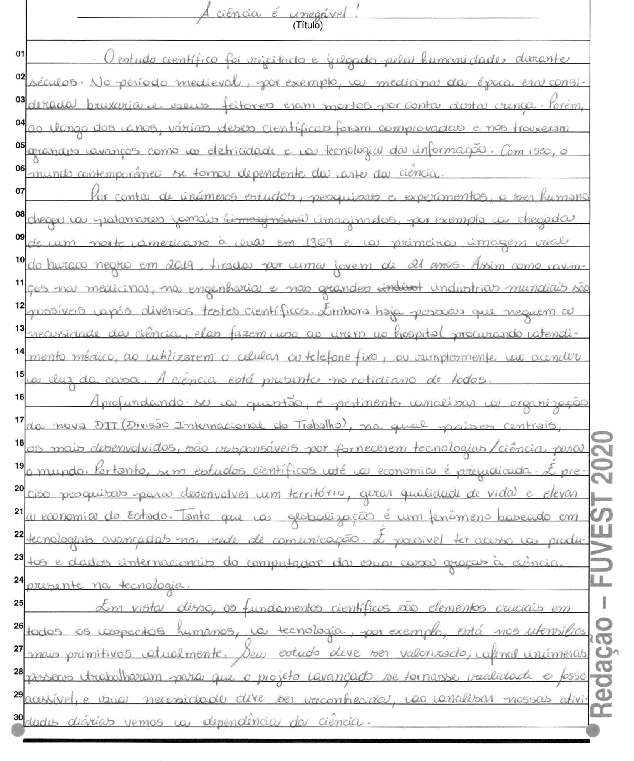 A ciência é inegável!
(Título)
01 O estudo científico foi rejeitado e julgado pelas humanidades durante
02 séculos. No período medieval, por exemplo, a medicina da época era consi-
03 derada bruxaria e seus feitores eram mortos por conta desta crença. Porém,
04 ao longo dos anos, várias teses científicas foram comprovadas e nos trouxeram
05 grandes avanços como a eletricidade e a tecnologia da informação. Com isso, o
06 mundo contemporâneo se torna dependente da arte da ciência.
07 Por conta de inúmeros estudos, pesquisas e experimentos, o ser humano
08 chegou a patamares jamais imaginados, por exemplo a chegada
09 de um norte americano à lua em 1969 e a primeira imagem real
10 do buraco negro em 2019, tirada por uma jovem de 21 anos. Assim como avan-
11 ços na medicina, na engenharia e nas grandes indústrias mundiais são
12 possíveis após diversos testes científicos. Embora haja pessoas que neguem a
13 necessidade da ciência, elas fazem uso ao irem ao hospital procurando atendi-
14 mento médico, ao utilizarem o celular ou telefone fixo, ou simplesmente ao acender
15 a luz da casa. A ciência está presente no cotidiano de todos.
16 Aprofundando-se a questão, é pertinente analisar a organização
17 da nova DIT (Divisão Internacional do Trabalho), na qual países centrais,
18 os mais desenvolvidos, são responsáveis por fornecerem tecnologias/ciência para
19 o mundo. Portanto, sem estudos científicos até a economia é prejudicada. É pre-
20 ciso pesquisas para desenvolver um território, gerar qualidade de vida e elevar
21 a economia do Estado. Tanto que a globalização é um fenômeno baseado em
22 tecnologias avançadas na rede de comunicação. É possível ter acesso a produ-
23 tos e dados internacionais do computador da sua casa graças à ciência
24 presente na tecnologia.
25 Em vista disso, os fundamentos científicos são elementos cruciais em
26 todos os aspectos humanos, a tecnologia, por exemplo, está nos utensílios
27 mais primitivos atualmente. Seu estudo deve ser valorizado, afinal inúmeras
28 pessoas trabalharam para que o projeto avançado se tornasse realidade e fosse
29 acessível, e sua necessidade deve ser reconhecida, ao analisar nossas ativi-
30 dades diárias vemos a dependência da ciência.
Redação – FUVEST 2020